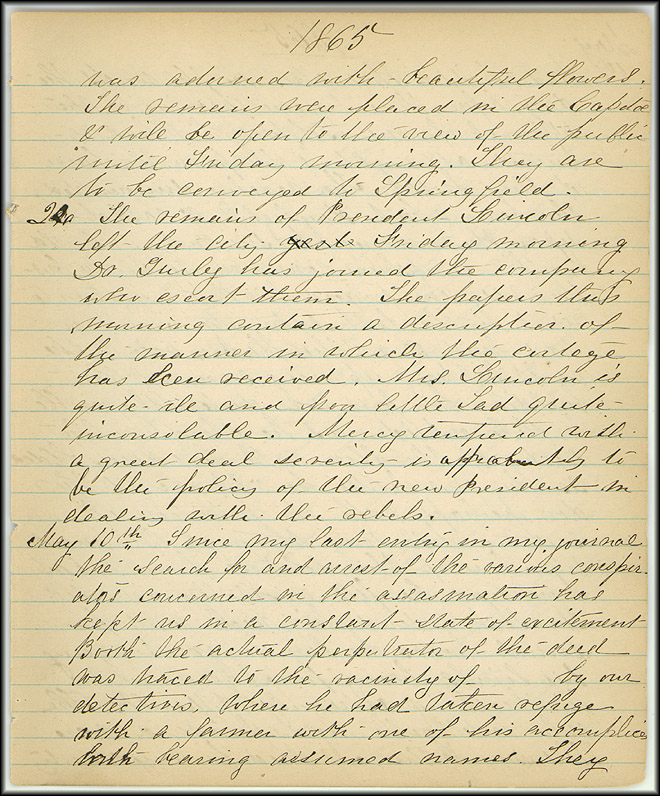 1865
was adorned with beautiful flowers.
The remains were placed in the Capitol
& will be open to the view of the public
until Friday morning. They are
to be conveyed to Springfield.
The remains of President Lincoln
left the city yest Friday morning
Dr. Gurley has joined the company
who escort them. The papers this
morning contain a description of
the manner in which the cortege
has been received. Mrs. Lincoln is
quite ill and poor little Tad quite
inconsolable. Mercy tempered with
a great deal severity is apparently to
be the policy of the new President in
dealing with the rebels.
May 10th Since my last entry in my journal
the search for and arrest of the various conspir-
ators concerned in the assasination has
kept us in a constant state of excitement
Booth the actual perpetrator of the deed
was traced to the vacinity of by our
detectives, where he had taken refuge
with a farmer with one of his accomplices
both bearing assumed names. They